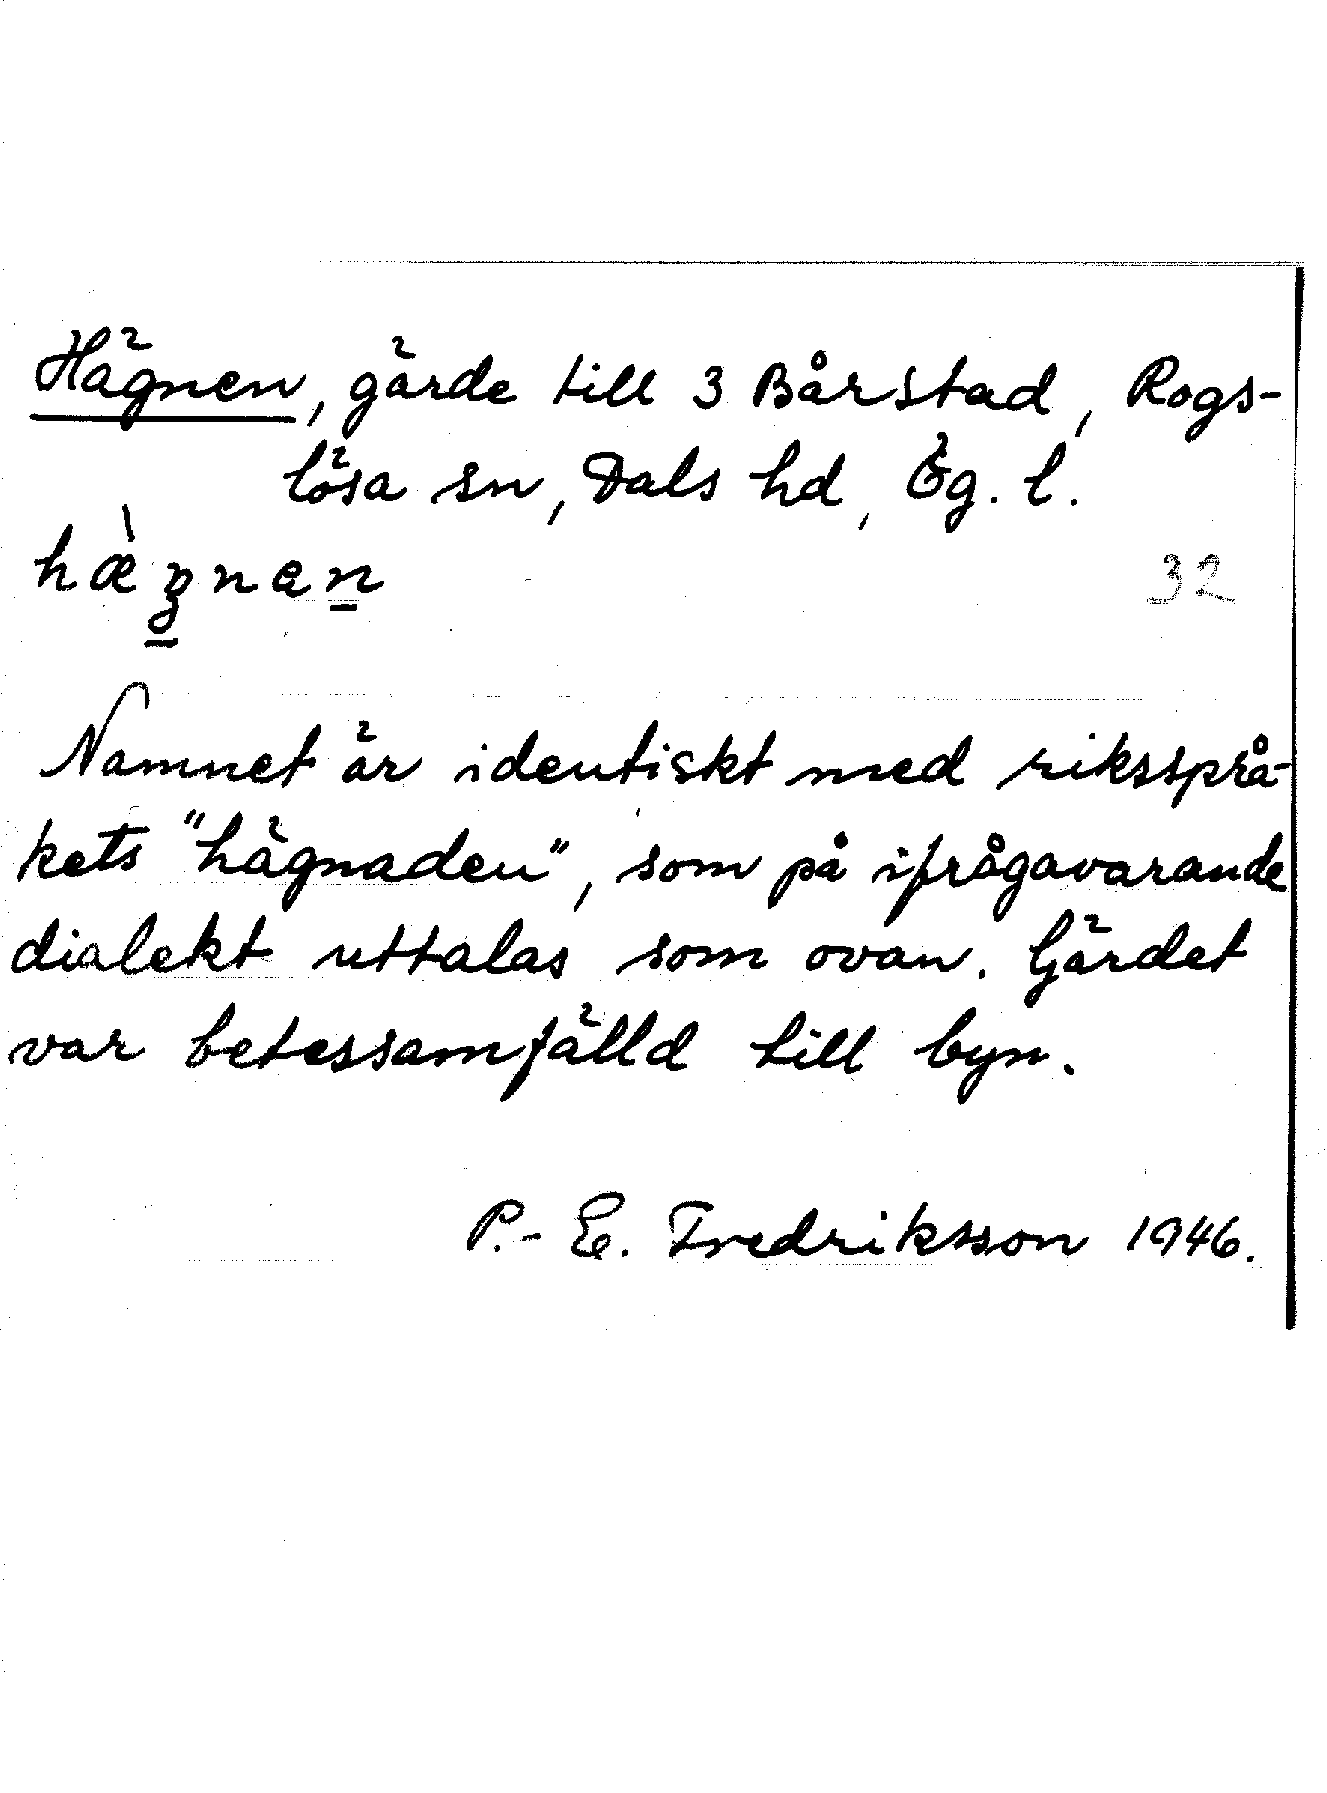 Hägnen, gärde till 3 Bårstad, Rogs-
lösa sn, Dals hd, Ög. l.
hæ̀gnen
32
Namnet är identiskt med rikssprå-
kets "hägnaden", som på ifrågavarande
dialekt uttalas som ovan. Gärdet
var betessamfälld till byn.
P.-E. Fredriksson 1946.